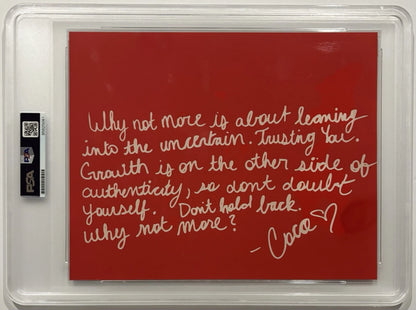 Why not more is about leaning
into the uncertain. Trusting You.
Growth is on the other side of
authenticity, so dont doubt
yourself. Don't hold back.
Why not more?
- Coco
PSA